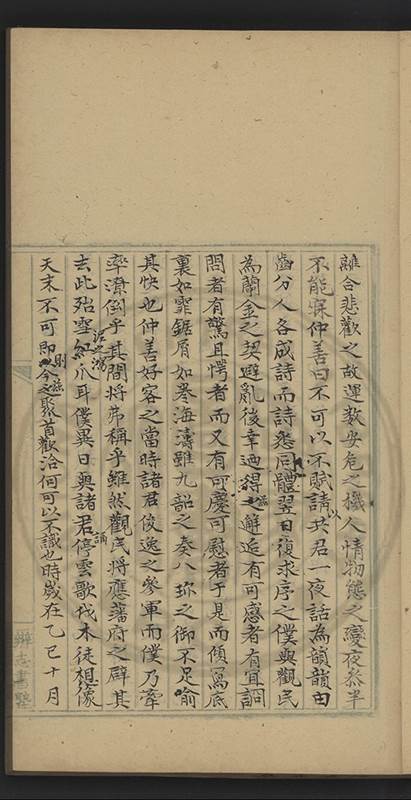 離合悲歡之故運數安危之機人情物態之變夜參半
不能寐仲善曰不可以不賦請以共君一夜話為韻韻由
齒分人各成詩而詩悉同體翌日復求序之僕與觀民
為蘭金之契避亂後幸迺得之邂逅有可感者有宜詗
問者有驚且愕者而又有可慶可慰者于是而傾寫底
裏如霏鋸屑如卷海濤雖九韶之奏八珍之御不足喻
其快也仲善好客之當時諸君俊逸之參軍而僕乃牽
率潦倒乎其間將弗稱乎雖然觀民將應藩府之辟其
去此殆雪泥之鴻爪耳僕異日與諸君停雲誦歌伐木徒想像
天末不可即則茲今之聚首歡洽何可以不識也時歲在乙巳十月
辨志書塾